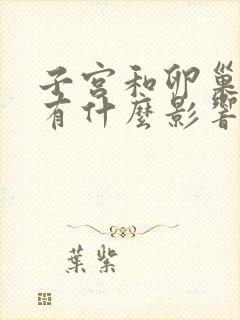 子宮和卵巢
有什麼影響
葉紫